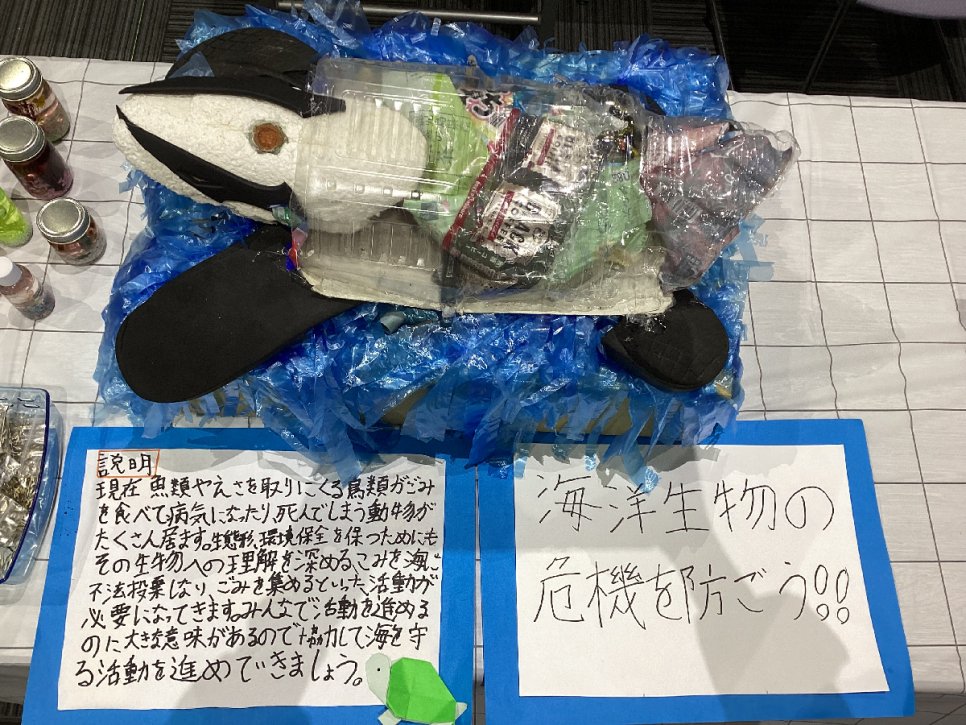 BLACK
BLACK
説明
現在 魚類やえさを取りにくる鳥類がごみ
を食べて病気になったり死んでしまう動物が
たくさん居ます。生態系、環境保全を保つためにも
その生物への理解を深める、ごみを海に
不法投棄しない、ごみを集めるといった活動が
必要になってきます。みんなで活動を進める
のに大きな意味があるので協力して海を守
る活動を進めてできましょう。
海洋生物の
危機を防ごう!!